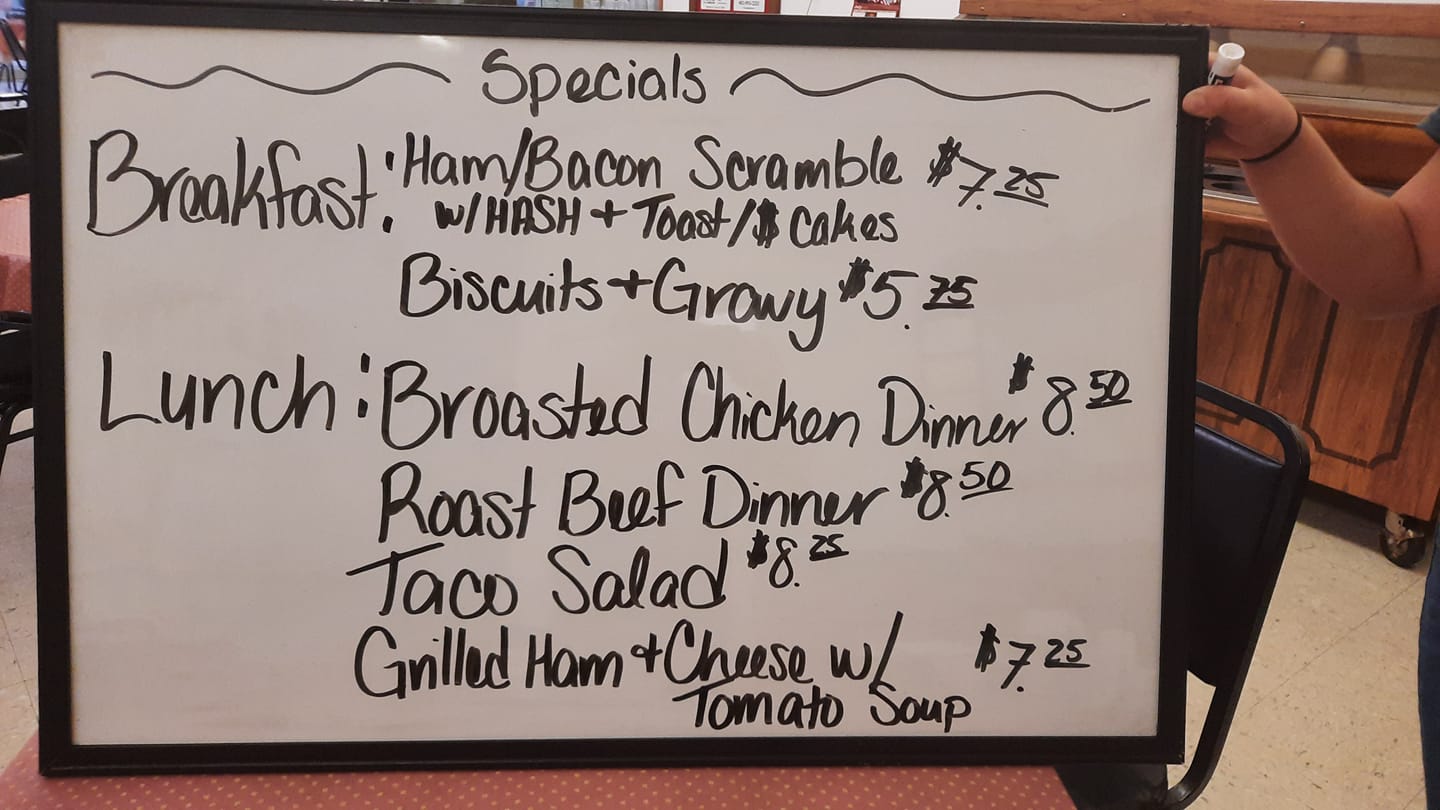 Specials
Breakfast: Ham/Bacon Scramble $7.25
w/HASH + Toast/$ Cakes
Biscuits + Gravy $5.75
Lunch: Broasted Chicken Dinner $8.50
Roast Beef Dinner $8.50
Taco Salad $8.25
Grilled Ham + Cheese w/ $7.25
Tomato Soup